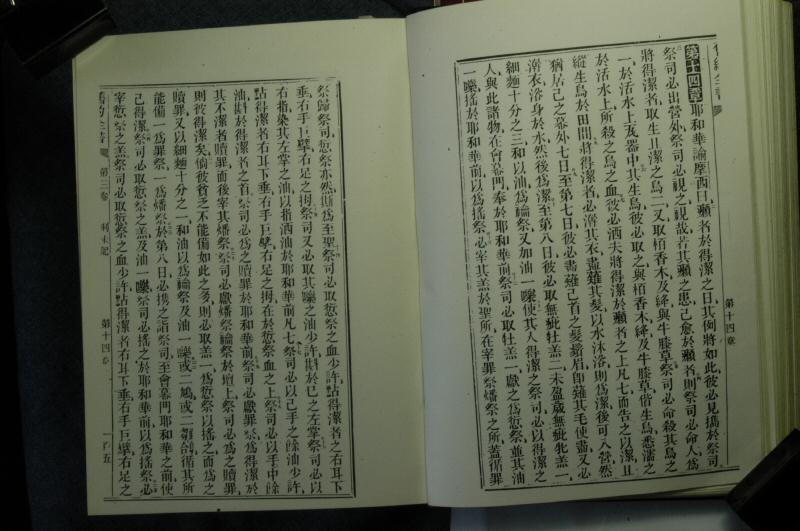 第十四章 耶和華諭摩西曰癩者於得潔之日其例將如此彼必見攜於祭司
祭司必出營外祭司必視之視哉若其癩之患己愈於癩者則祭司必命人爲
將得潔者取生且潔之鳥二又取栢香木及絳與牛膝草祭司必命殺其鳥之
一於活水上瓦器中其生鳥彼必取之與栢香木絳及牛膝草偕生鳥悉濡之
於活水上所殺之鳥之血彼必洒夫將得潔於癩者之上凡七而告之以潔且
縱生鳥於田間將得潔者必澣其衣盡薙其髮以水沐浴則爲潔後可入營然
猶居己之幕外七日至第七日彼必盡薙己首之髮鬚眉卽薙其毛使盡又必
澣衣浴身於水然後爲潔至第八日彼必取無疵牡羔二未盈歲無疵牝羔一
細麵十分之三和以油爲禴祭又加油一嚗使其人得潔之祭司必以得潔之
人與此諸物在會幕門奉於耶和華前祭司必取牡羔一獻之爲愆祭並其油
一嚗搖於耶和華前以爲搖祭必宰其羔於聖所在宰罪祭燔祭之所蓋偕罪
第十四章
祭歸祭司愆祭亦然斯爲至聖祭司必取愆祭之血少許玷得潔者之右耳下
垂右手巨擘右足之拇祭司又必取其嚗之油少許斟於已之左掌祭司必以
右指染其左掌之油以指洒油於耶和華前凡七祭司必以己手之餘油少許
玷得潔者右耳下垂右手巨擘右足之拇在於愆祭血之上祭司必以手中餘
油斟於得潔者之首祭司必爲之贖罪於耶和華前祭司必獻罪祭爲得潔於
其不潔者贖罪而後宰其燔祭祭司必獻燔祭禴祭於壇上祭司必爲之贖罪
則彼得潔矣倘彼貧乏不能備如此之多則必取羔一爲愆祭以搖之而爲之
贖罪又以細麵十分之一和油以爲禴祭及油一嚗或二鳩或二雛鴿循其所
能備一爲罪祭一爲燔祭於第八日必携之詣祭司至會幕門耶和華之前使
己得潔祭司必取愆祭之羔及油一嚗祭司必搖之於耶和華前以爲搖祭必
宰愆祭之羔祭司必取愆祭之血少許玷得潔者右耳下垂右手巨擘右足之
第三卷 利未記 第十四章 一百五